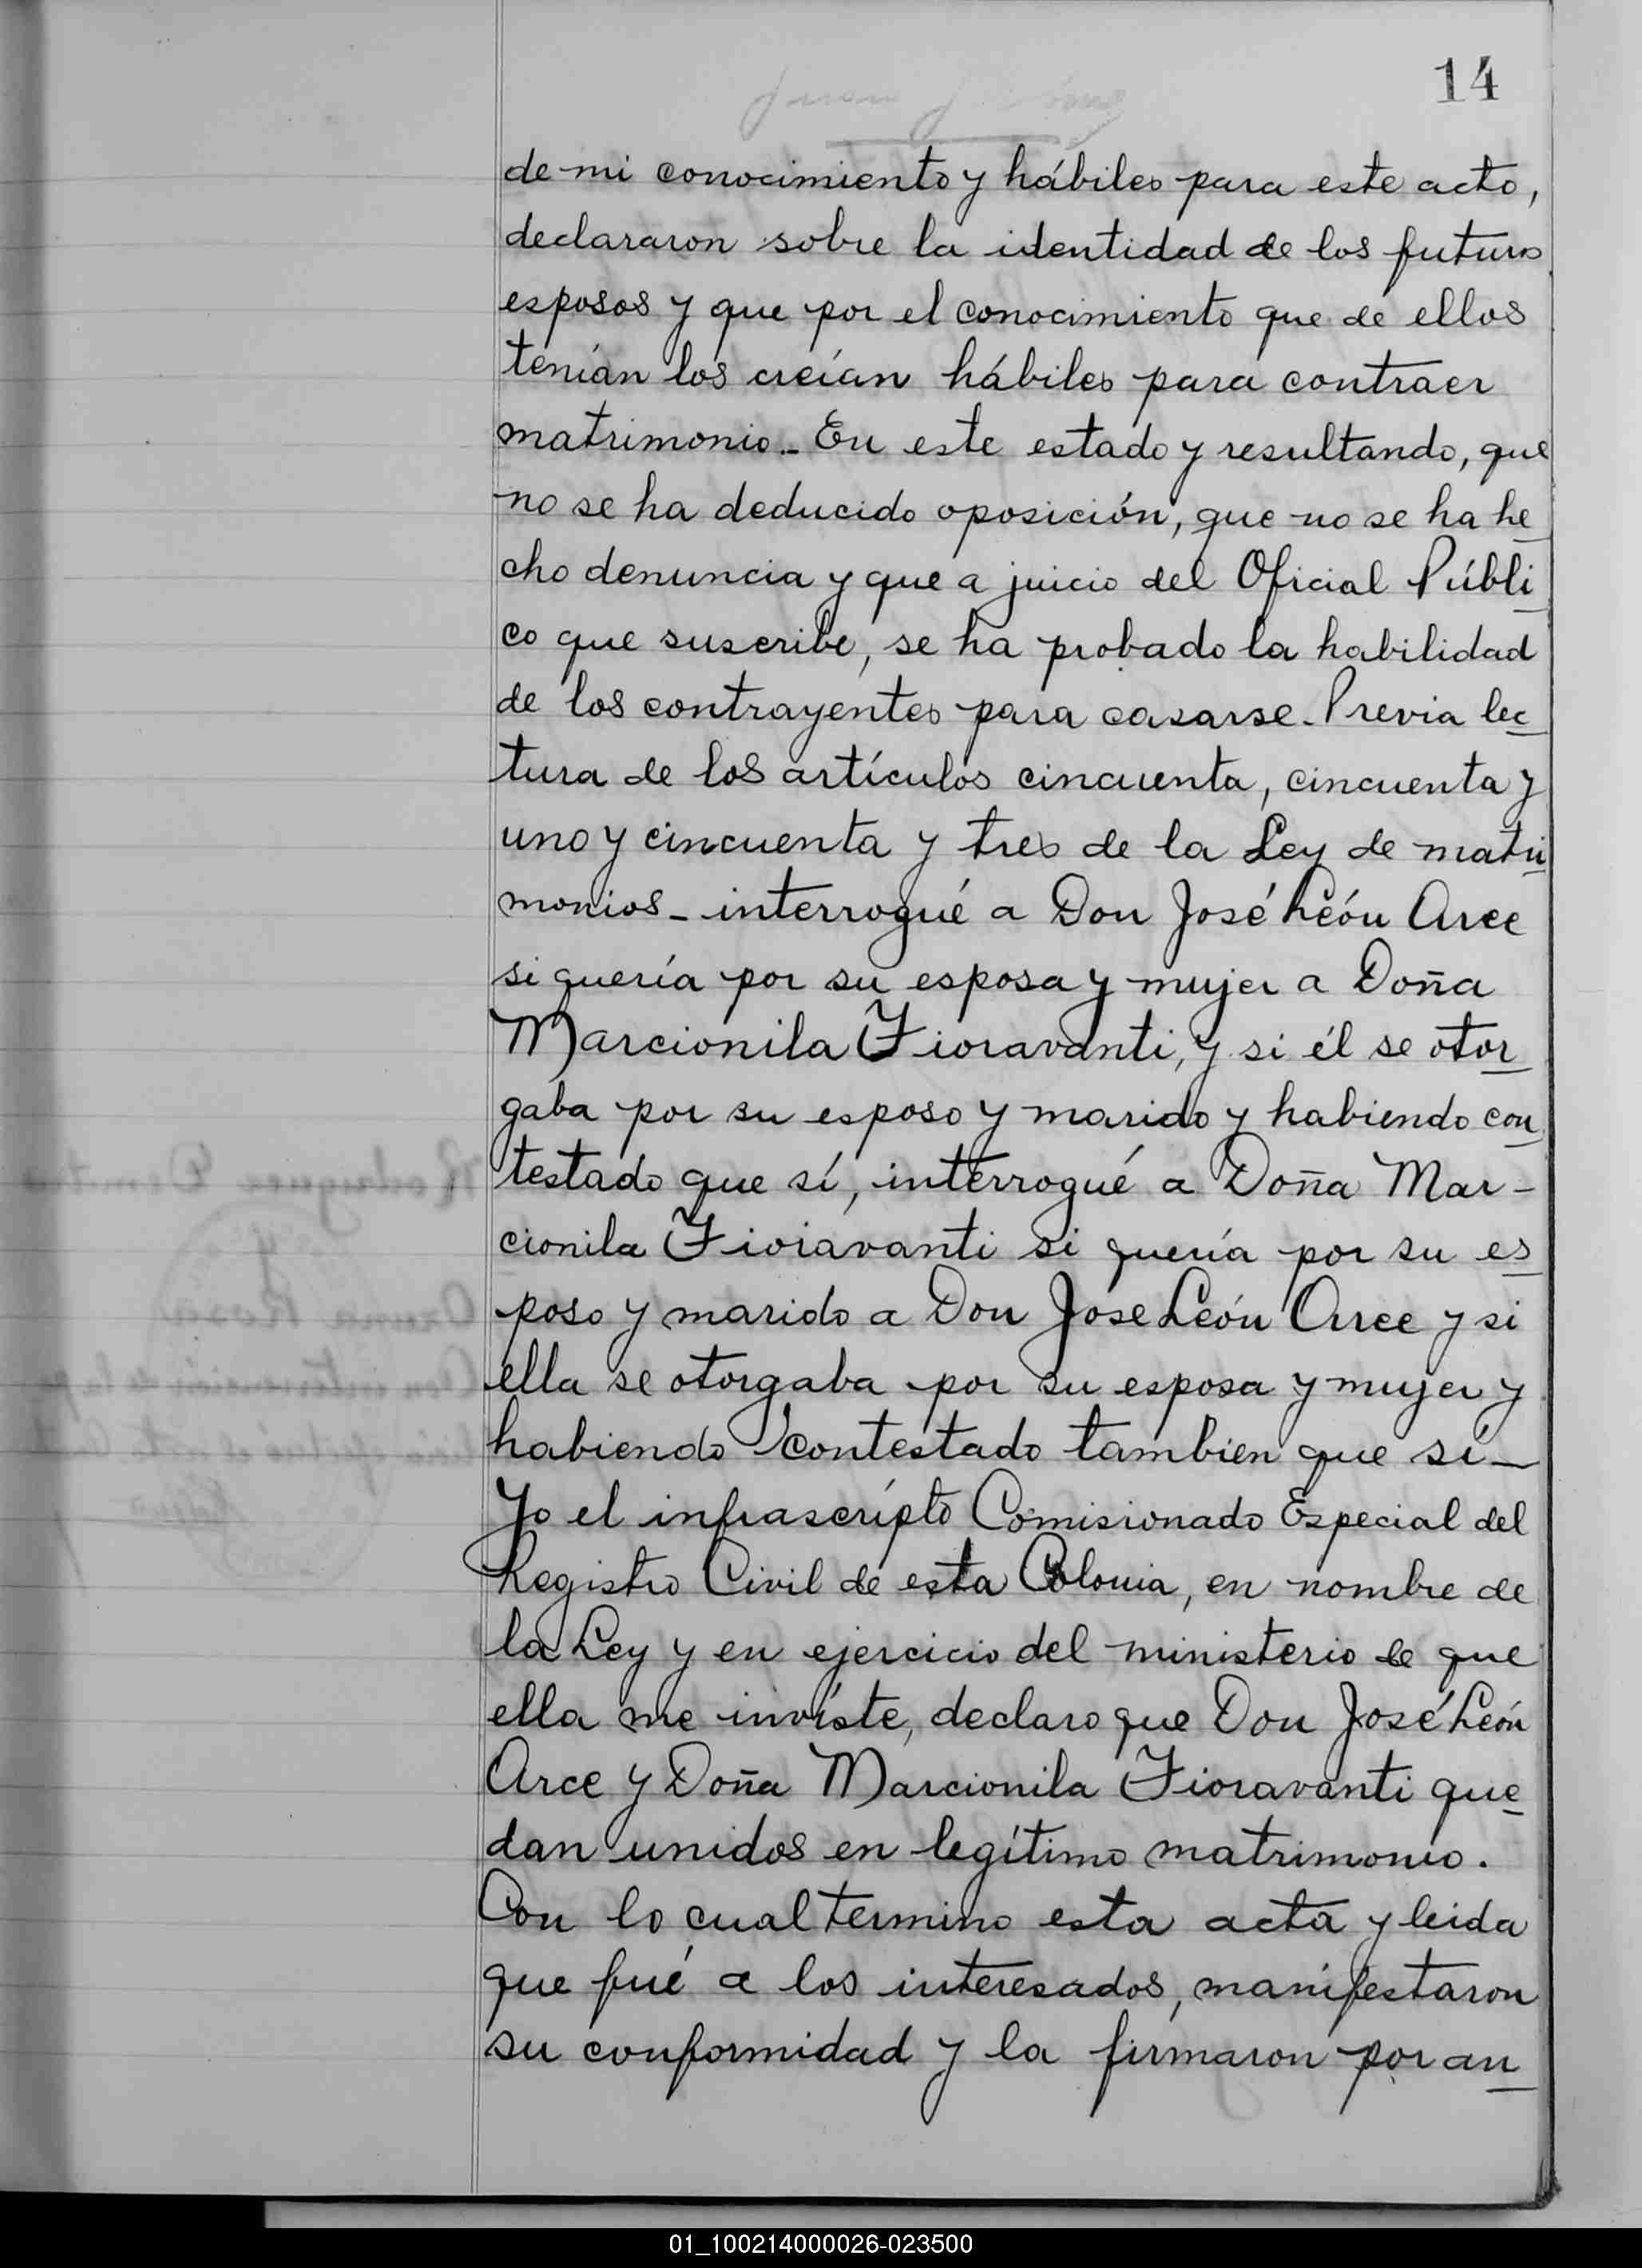 14
de mi conocimiento y hábiles para este acto,
declararon sobre la identidad de los futuros
esposos y que por el conocimiento que de ellos
tenían los creían hábiles para contraer
matrimonio.- En este estado y resultando, que
no se ha deducido oposición, que no se ha he
cho denuncia y que a juicio del Oficial Públi
co que suscribe, se ha probado la habilidad
de los contrayentes para casarse. Previa lec
tura de los artículos cincuenta, cincuenta y
uno y cincuenta y tres de la Ley de matri
monios - interrogué a Don José León Arce
si quería por su esposa y mujer a Doña
Marcionila Fioravanti, y si él se otor
gaba por su esposo y marido y habiendo con
testado que sí, interrogué a Doña Mar-
cionila Fioravanti si quería por su es
poso y marido a Don Jose León Arce y si
ella se otorgaba por su esposa y mujer y
habiendo contestado tambien que sí -
Yo el infrascripto Comisionado Especial del
Registro Civil de esta Colonia, en nombre de
la Ley y en ejercicio del ministerio de que
ella me inviste, declaro que Don José León
Arce y Doña Marcionila Fioravanti que
dan unidos en legítimo matrimonio.
Con lo cual termino esta acta y leida
que fué a los interesados, manifestaron
su conformidad y la firmaron por an
01_100214000026-023500